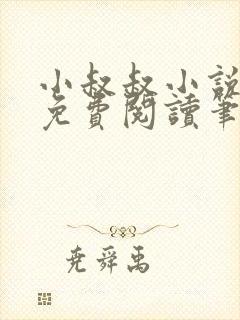 小叔叔小說
免費閱讀筆
堯舜禹